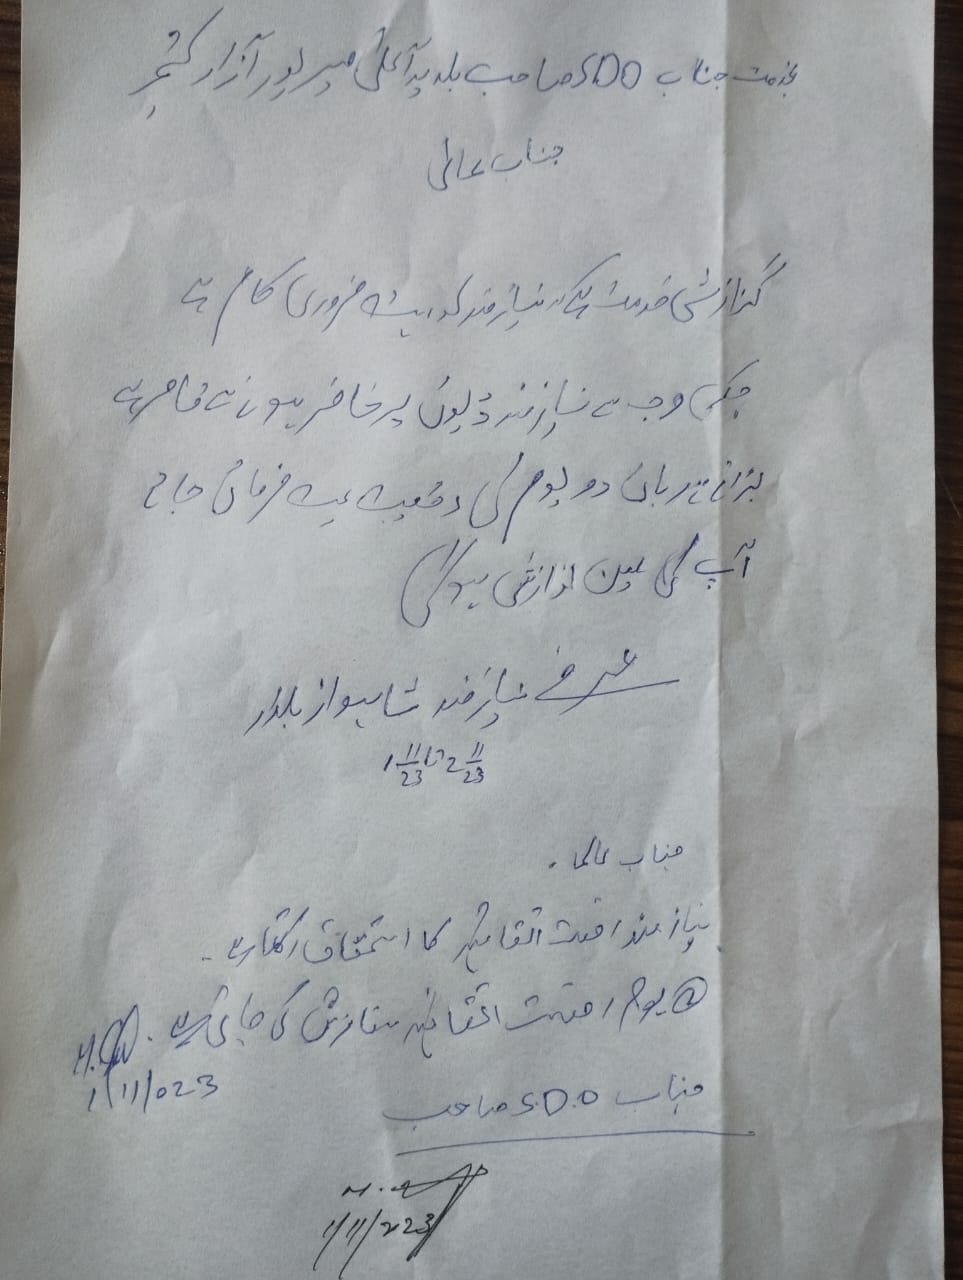 بخدمت جناب SDO صاحب بلدیہ اعلیٰ میرپور آزاد کشمیر
جناب عالی
گزارش خدمت ہے کہ نیازمند کو ایک ضروری کام ہے
جسکی وجہ سے نیازمند ڈیوٹی پر حاضر ہونے سے قاصر ہے
براۓ مہربانی دو یوم کی رخصت عطا فرمائی جاۓ
آپ کی عین نوازش ہوگی
عرضے نیازمند شاہنواز بیلدار
1 11/23 تا 2 11/23
جناب عالی۔
نیازمند رخصت اتفاقیہ کا استحقاق رکھتا ہے۔
یوم رخصت اتفاقیہ سفارش کی جاتی ہے۔
1/11/023
جناب S.D.O صاحب
1/11/223